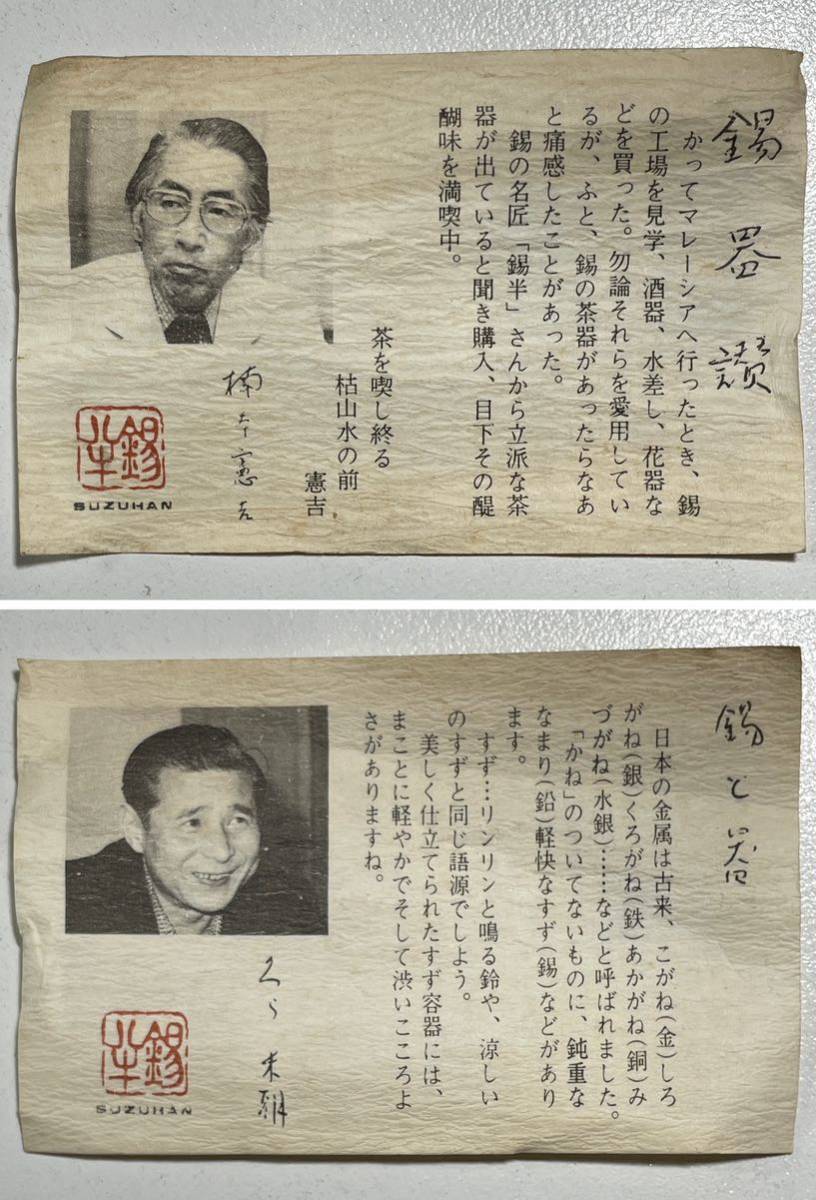 錫器讃
かってマレーシアへ行ったとき、錫
の工場を見学、酒器、水差し、花器な
どを買った。勿論それらを愛用してい
るが、ふと、錫の茶器があったらなあ
と痛感したことがあった。
錫の名匠「錫半」さんから立派な茶
器が出ていると聞き購入、目下その醍
醐味を満喫中。
茶を喫し終る
枯山水の前
憲吉
楠本憲吉
錫半
SUZUHAN
錫と器
日本の金属は古来、こがね(金)しろ
がね(銀)くろがね(鉄)あかがね(銅)み
づがね(水銀)……などと呼ばれました。
「かね」のついてないものに、鈍重な
なまり(鉛)軽快なすず(錫)などがあり
ます。
すず…リンリンと鳴る鈴や、涼しい
のすずと同じ語源でしよう。
美しく仕立てられたすず容器には、
まことに軽やかでそして渋いこころよ
さがありますね。
米朝
錫半
SUZUHAN